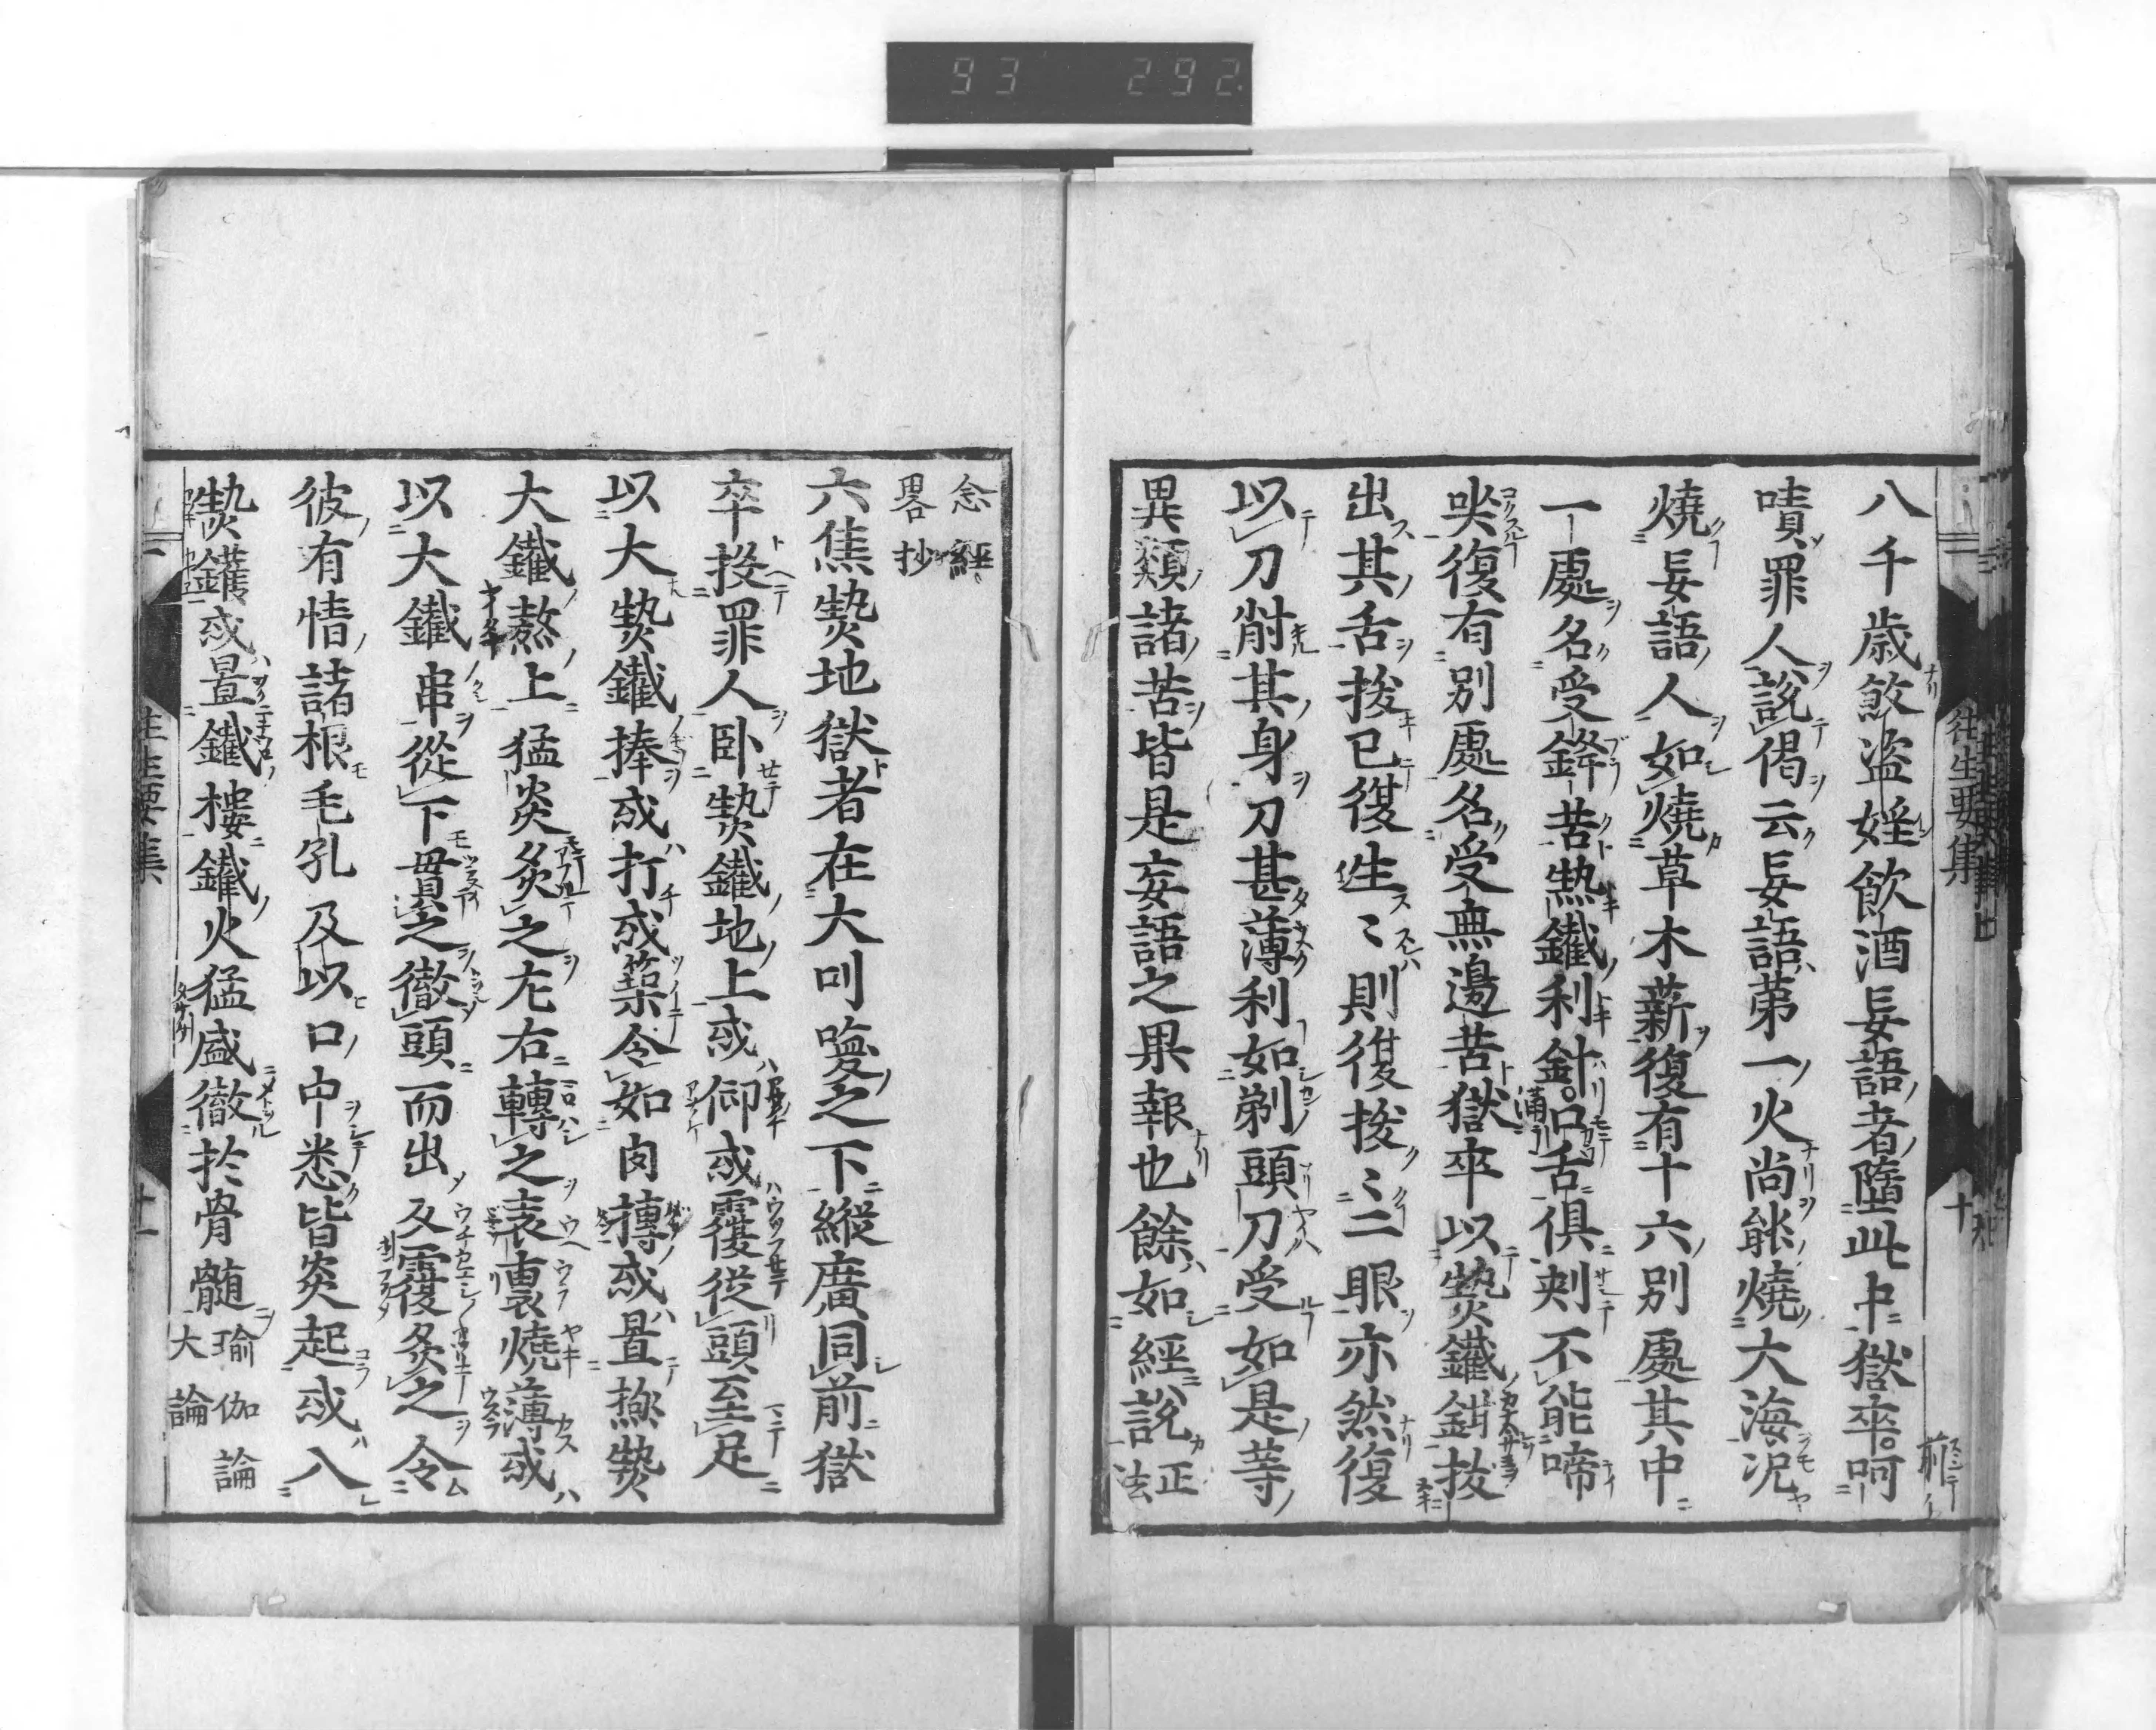 93 292.
八千歳煞盗婬飲酒妄語者墮此中獄卒呵
嘖罪人說偈云妄語第一火尚能燒大海況
燒妄語人如燒草木薪復有十六別處其中
一處名受鋒苦熱鐵利針口舌俱刺不能啼
哭復有別處名受無邊苦獄卒以熱鐵鉗拔
出其舌拔已復生々則復拔々二眼亦然復
以刀削其身刀甚薄利如剃頭刀受如是等
異類諸苦皆是妄語之果報也餘如經說正法
念經畧抄
六焦熱地獄者在大叫喚之下縱廣同前獄
卒投罪人臥熱鐵地上或仰或覆從頭至足
以大熱鐵捧或打或築令如肉摶或置㷶熱
大鐵熬上猛炎炙之左右轉之表裏燒薄或
以大鐵串從下貫之徹頭而出又覆炙之令
彼有情諸根毛孔及以口中悉皆炎起或入
熱鑊或置鐵樓鐵火猛盛徹於骨髓瑜伽論大論
往生要集
十
往生要集
十一